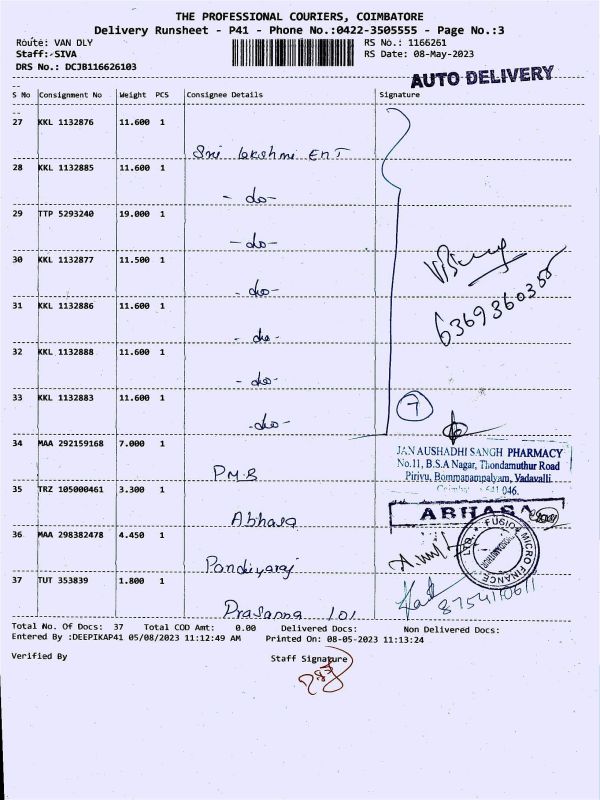 THE PROFESSIONAL COURIERS, COIMBATORE
Delivery Runsheet - P41 - Phone No.:0422-3505555 - Page No.:3
Route: VAN DLY
RS No.: 1166261
Staff: SIVA
RS Date: 08-May-2023
DRS No.: DCJB116626103
AUTO DELIVERY
S No Consignment No Weight PCS Consignee Details Signature
27 KKL 1132876 11.600 1
Sri lakshmi ENT
28 KKL 1132885 11.600 1
- do -
29 TTP 5293240 19.000 1
- do -
30 KKL 1132877 11.500 1
- do -
31 KKL 1132886 11.600 1
- do -
32 KKL 1132888 11.600 1
- do -
33 KKL 1132883 11.600 1
- do -
6369360358
7
34 MAA 292159168 7.000 1
P.M.B
JANAUSHADHI SANGH PHARMACY
No.11, B.S.A Nagar, Thondamuthur Road
Pirivu, Bommanampalyam, Vadavalli
Coimbatore - 641 046.
35 TRZ 105000461 3.300 1
Abhasa
ABHASA
36 MAA 298382478 4.450 1
Pandiyaraj
FUSION MICRO FINANCE LTD.
37 TUT 353839 1.800 1
Prasanna 101
8754110611
Total No. Of Docs: 37 Total COD Amt: 0.00 Delivered Docs: Non Delivered Docs:
Entered By :DEEPIKAP41 05/08/2023 11:12:49 AM Printed On: 08-05-2023 11:13:24
Verified By Staff Signature